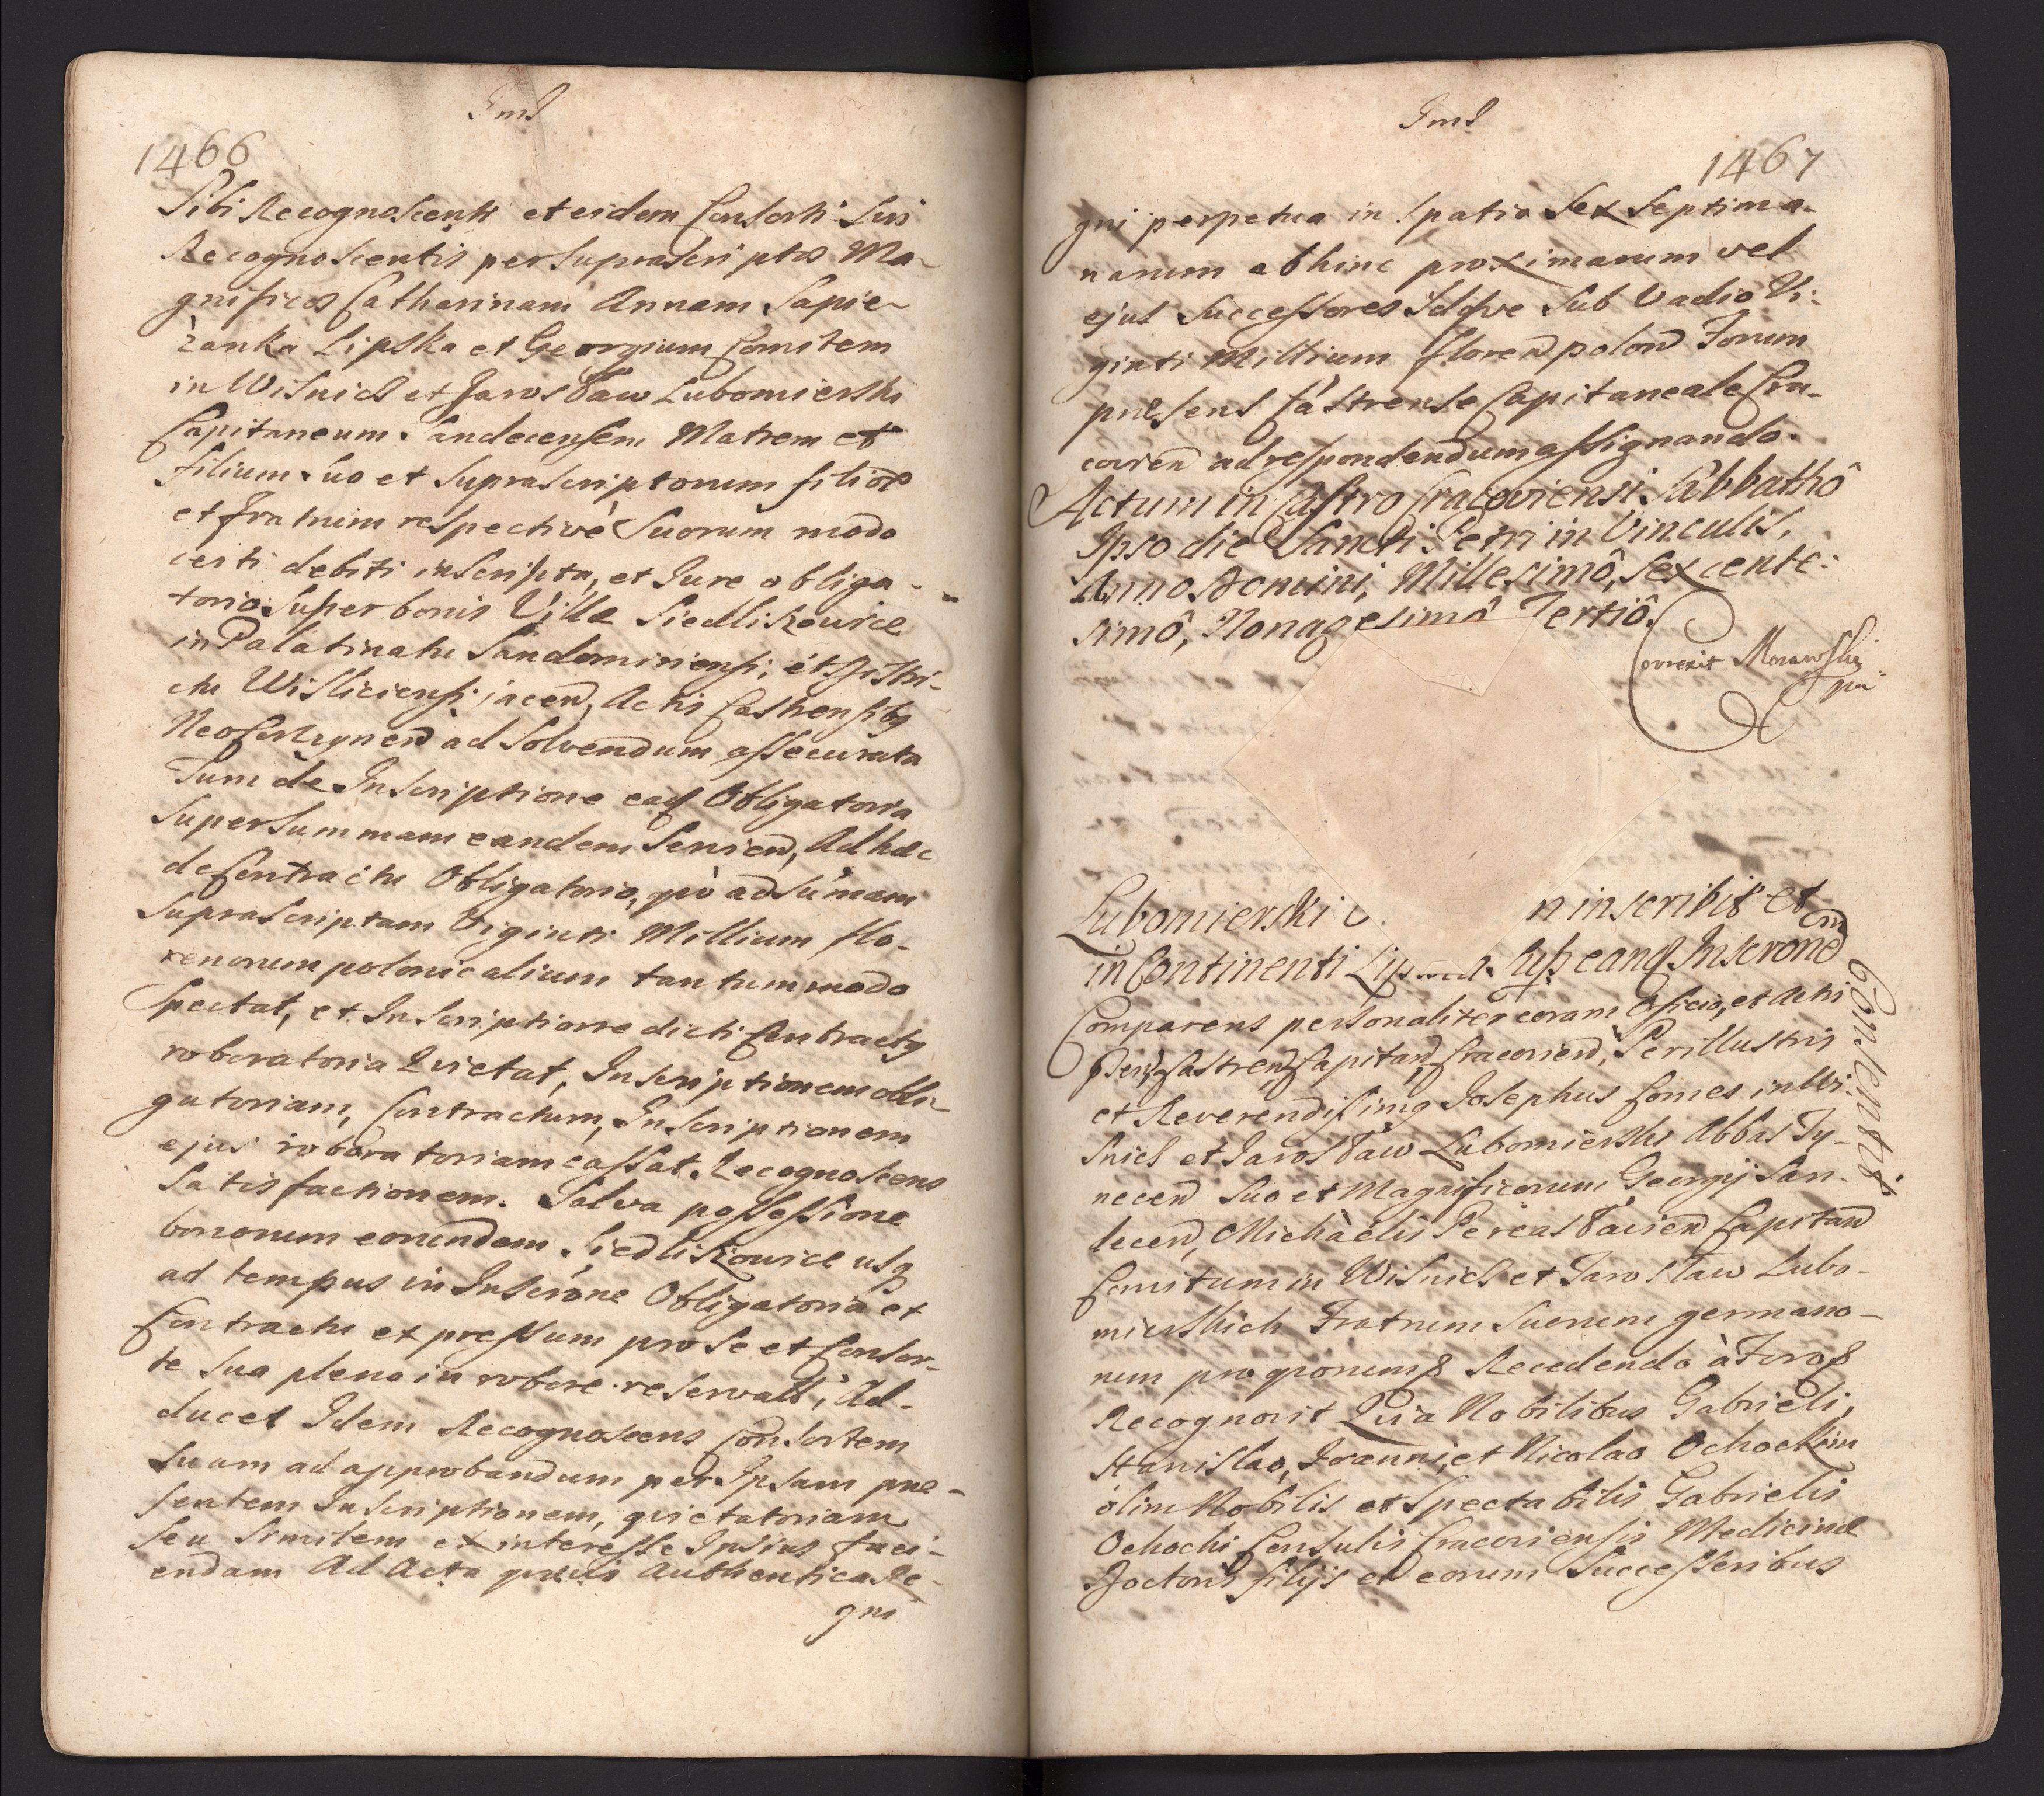 Ims
1466
Sibi Recognoscenti et eidem Consorti Sui
Recognoscentis per suprascriptos Ma-
gnificos Catharinam Annam Sapie-
żanka Lipska et Georgium Comitem
in Wisnicz et Jarosław Lubomierski
Capitaneum Sandecensem Matrem et
filium suo et suprascriptorum filior
et fratrum respectivè Suorum modo
certi debiti inscripta, et Jure obliga-
torio super bonis Villæ Siedliszowice
in Palatinatu Sandomiriensi, et Distri-
ctu Wisliciensi jacen, Actis Castrensibg
Neo Corczynen ad Solvendum assecurata
Tum de Inscriptione eaq Obligatoria
super summam eandem Servien, Ad hæc
de Contractu Obligatorio, qò ad sumam
supra scriptam Viginti Millium flo-
renorum polonicalium tantummodo
spectat, et Inscriptione dicti Contractg
roboratoria Quietat, Inscriptionem obli-
gatoriam, Contractum, Inscriptionem
ejus roboratoriam cassat. Recognoscens
Satisfactionem. Salva possessione
bonorum eorundem Siedliszowice usq
ad tempus in Inscrône Obligatoria et
Contractu expressum pro se et Consor-
te sua pleno in robore reservatâ, Ad-
ducet Idem Recognoscens Consortem
suam ad approbandum per Ipsam præ-
sentem Inscriptionem, quietatoriam
seu similem ex interesse Ipsius faci-
endam Ad Acta quævis Authentica Re-
gni
Ims
1467
gni perpetua in spatio Sex Septima-
narum abhinc proximarum vel
ejus Successores Idqve Sub Vadio Vi-
ginti Millium floren polon Forum
præsens Castrense Capitaneale Cra-
covien ad respondendum assignando.
Actum in Castro Cracoviensi Sabbathô
Ipso die Sancti Petri in Vinculis,
Anno Domini, Millesimô, Sexcente-
simô, Nonagesimô Tertiô.
Correxit Morawski
Lubomierski n inscribit et
in Continenti sup eanq Inscronem
Consentit
Comparens personaliter coram Officio, et Actis
Castren Capitan Cracovien, Perillustris
et Reverendissimg Josephus Comes in Wi-
snicz et Jarosław Lubomierski Abbas Ty-
necen suo et Magnificorum Georgij San-
decen, Michaëlis Pereasławien Capitan
Comitum in Wisnicz et Jarosław Lubo-
mierskich Fratrum suorum germano-
rum pro quorum Recedendo à Foro
Recognovit Quia Nobilibus Gabrieli,
Stanislao, Joanni, et Nicolao Ochockim
olim Nobilis et Spectabilis Gabrielis
Ochocki Consulis Cracoviensis Medicinæ
Doctoris filijs et eorum Successoribus